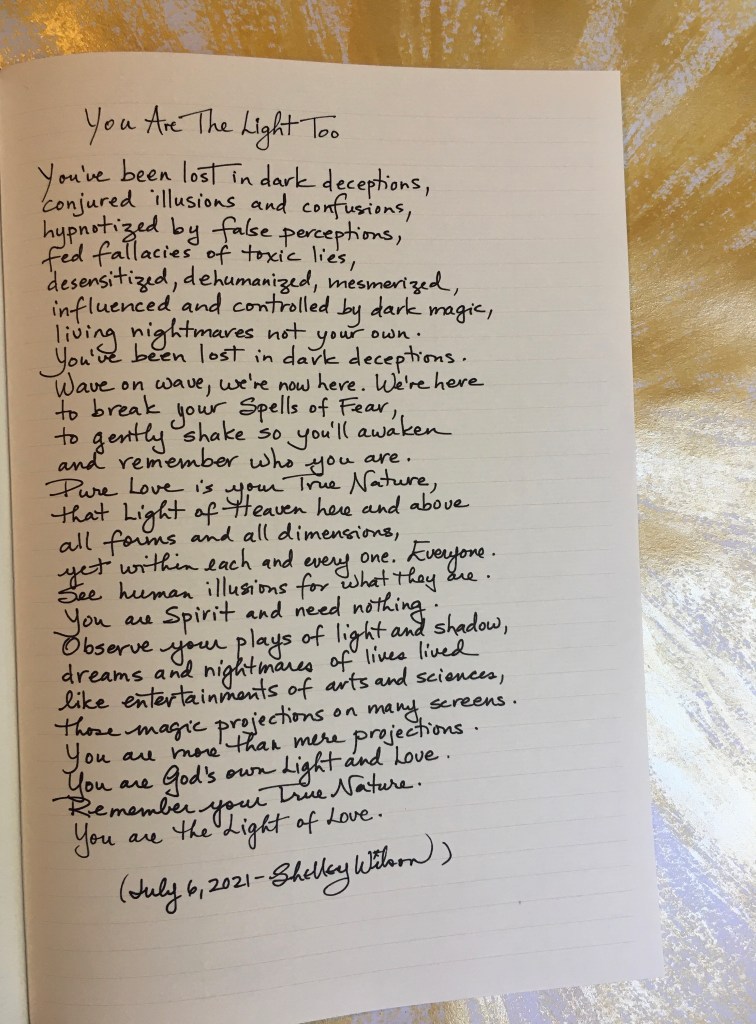 You Are The Light Too
You've been lost in dark deceptions,
conjured illusions and confusions,
hypnotized by false perceptions,
fed fallacies of toxic lies,
desensitized, dehumanized, mesmerized,
influenced and controlled by dark magic,
living nightmares not your own.
You've been lost in dark deceptions.
Wave on wave, we're now here. We're here
to break your Spells of Fear,
to gently shake so you'll awaken
and remember who you are.
Pure Love is your True Nature,
that Light of Heaven here and above
all forms and all dimensions,
yet within each and every one. Everyone.
See human illusions for what they are.
You are Spirit and need nothing.
Observe your plays of light and shadow,
dreams and nightmares of lives lived
like entertainments of arts and sciences,
those magic projections on many screens.
You are more than mere projections.
You are God's own Light and Love.
Remember your True Nature.
You are the Light of Love.
(July 6, 2021 - Shelley Wilson)